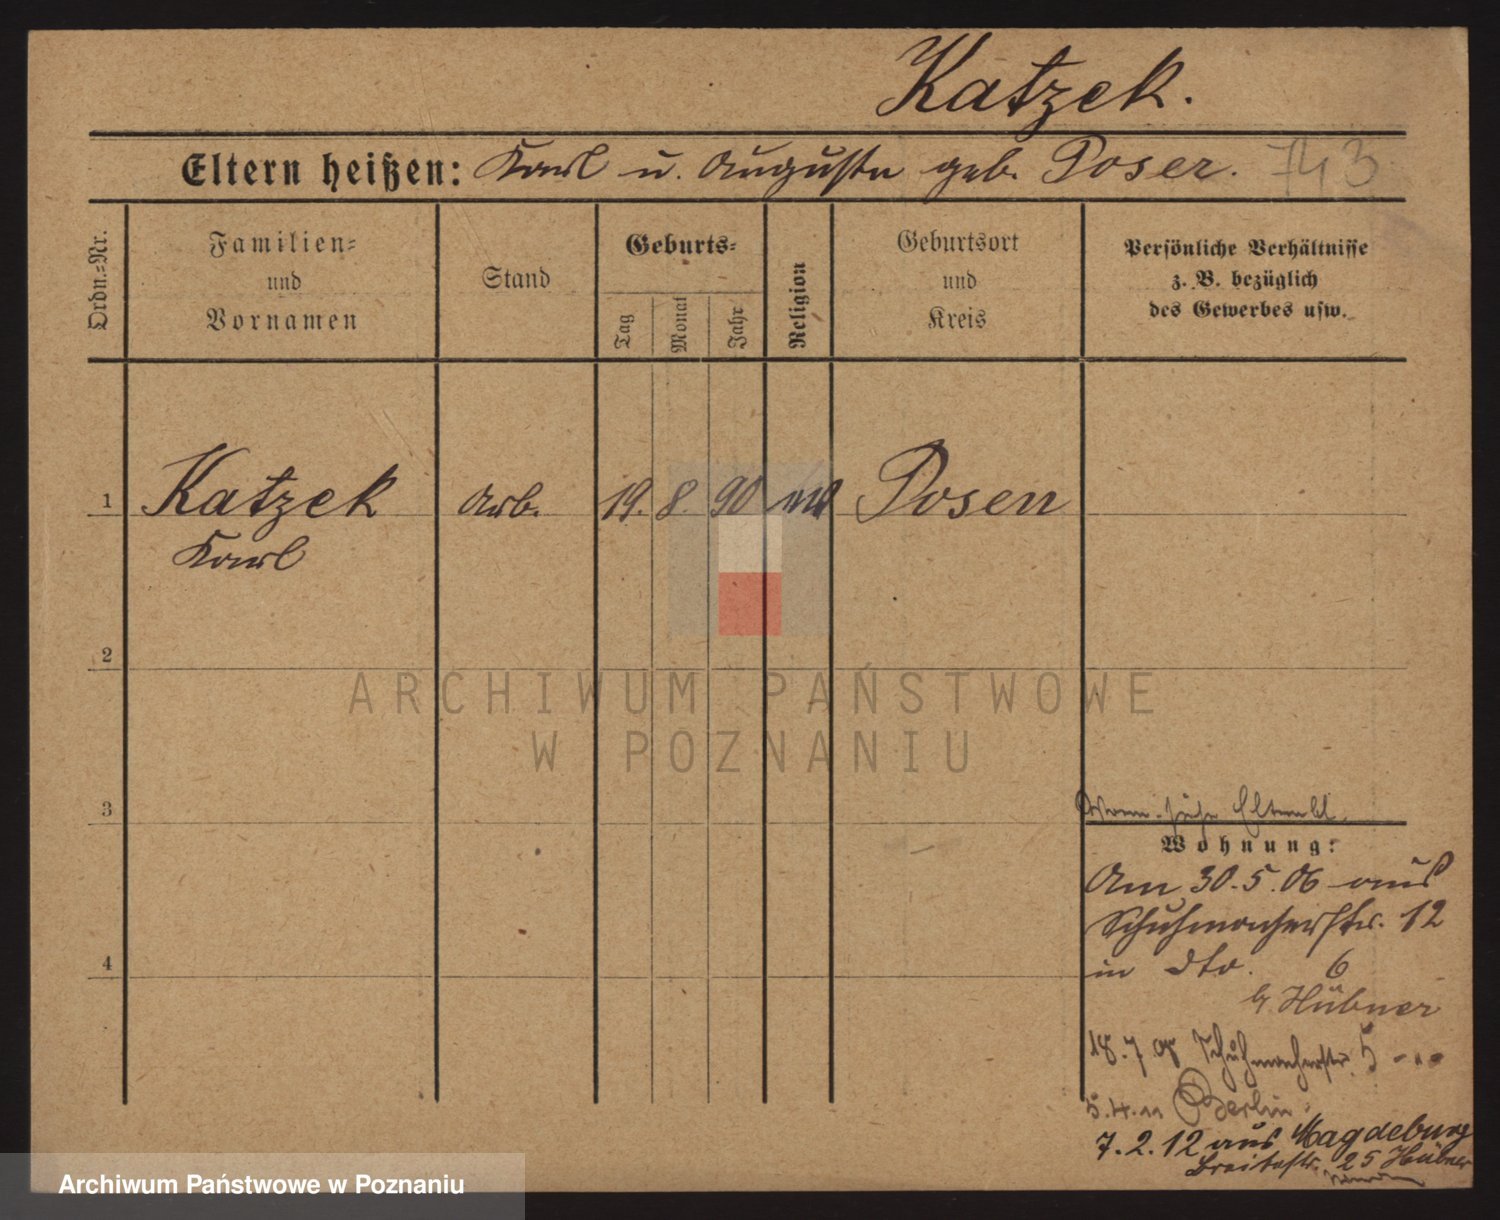 Katzek.
Eltern heißen: Karl u. Auguste geb. Poser. 743
Ordn.-Nr.
Familien-
und
Vornamen
Stand
Geburts-
Tag
Monat
Jahr
Religion
Geburtsort
und
Kreis
Persönliche Verhältnisse
z. B. bezüglich
des Gewerbes usw.
1 Katzek Arb. 19. 8. 90 Posen
Karl
2
ARCHIWUM PAŃSTWOWE
W POZNANIU
3
siehe Elternbl.
Wohnung:
Am 30.5.06 aus
Schuhmacherstr. 12
4
in dto. 6
b/ Hübner
18.7 08 Schuhmacherstr. 5 -..-
5.4.11 Berlin.
7.2.12 aus Magdeburg
Breitestr. 25 Hübner
Archiwum Państwowe w Poznaniu